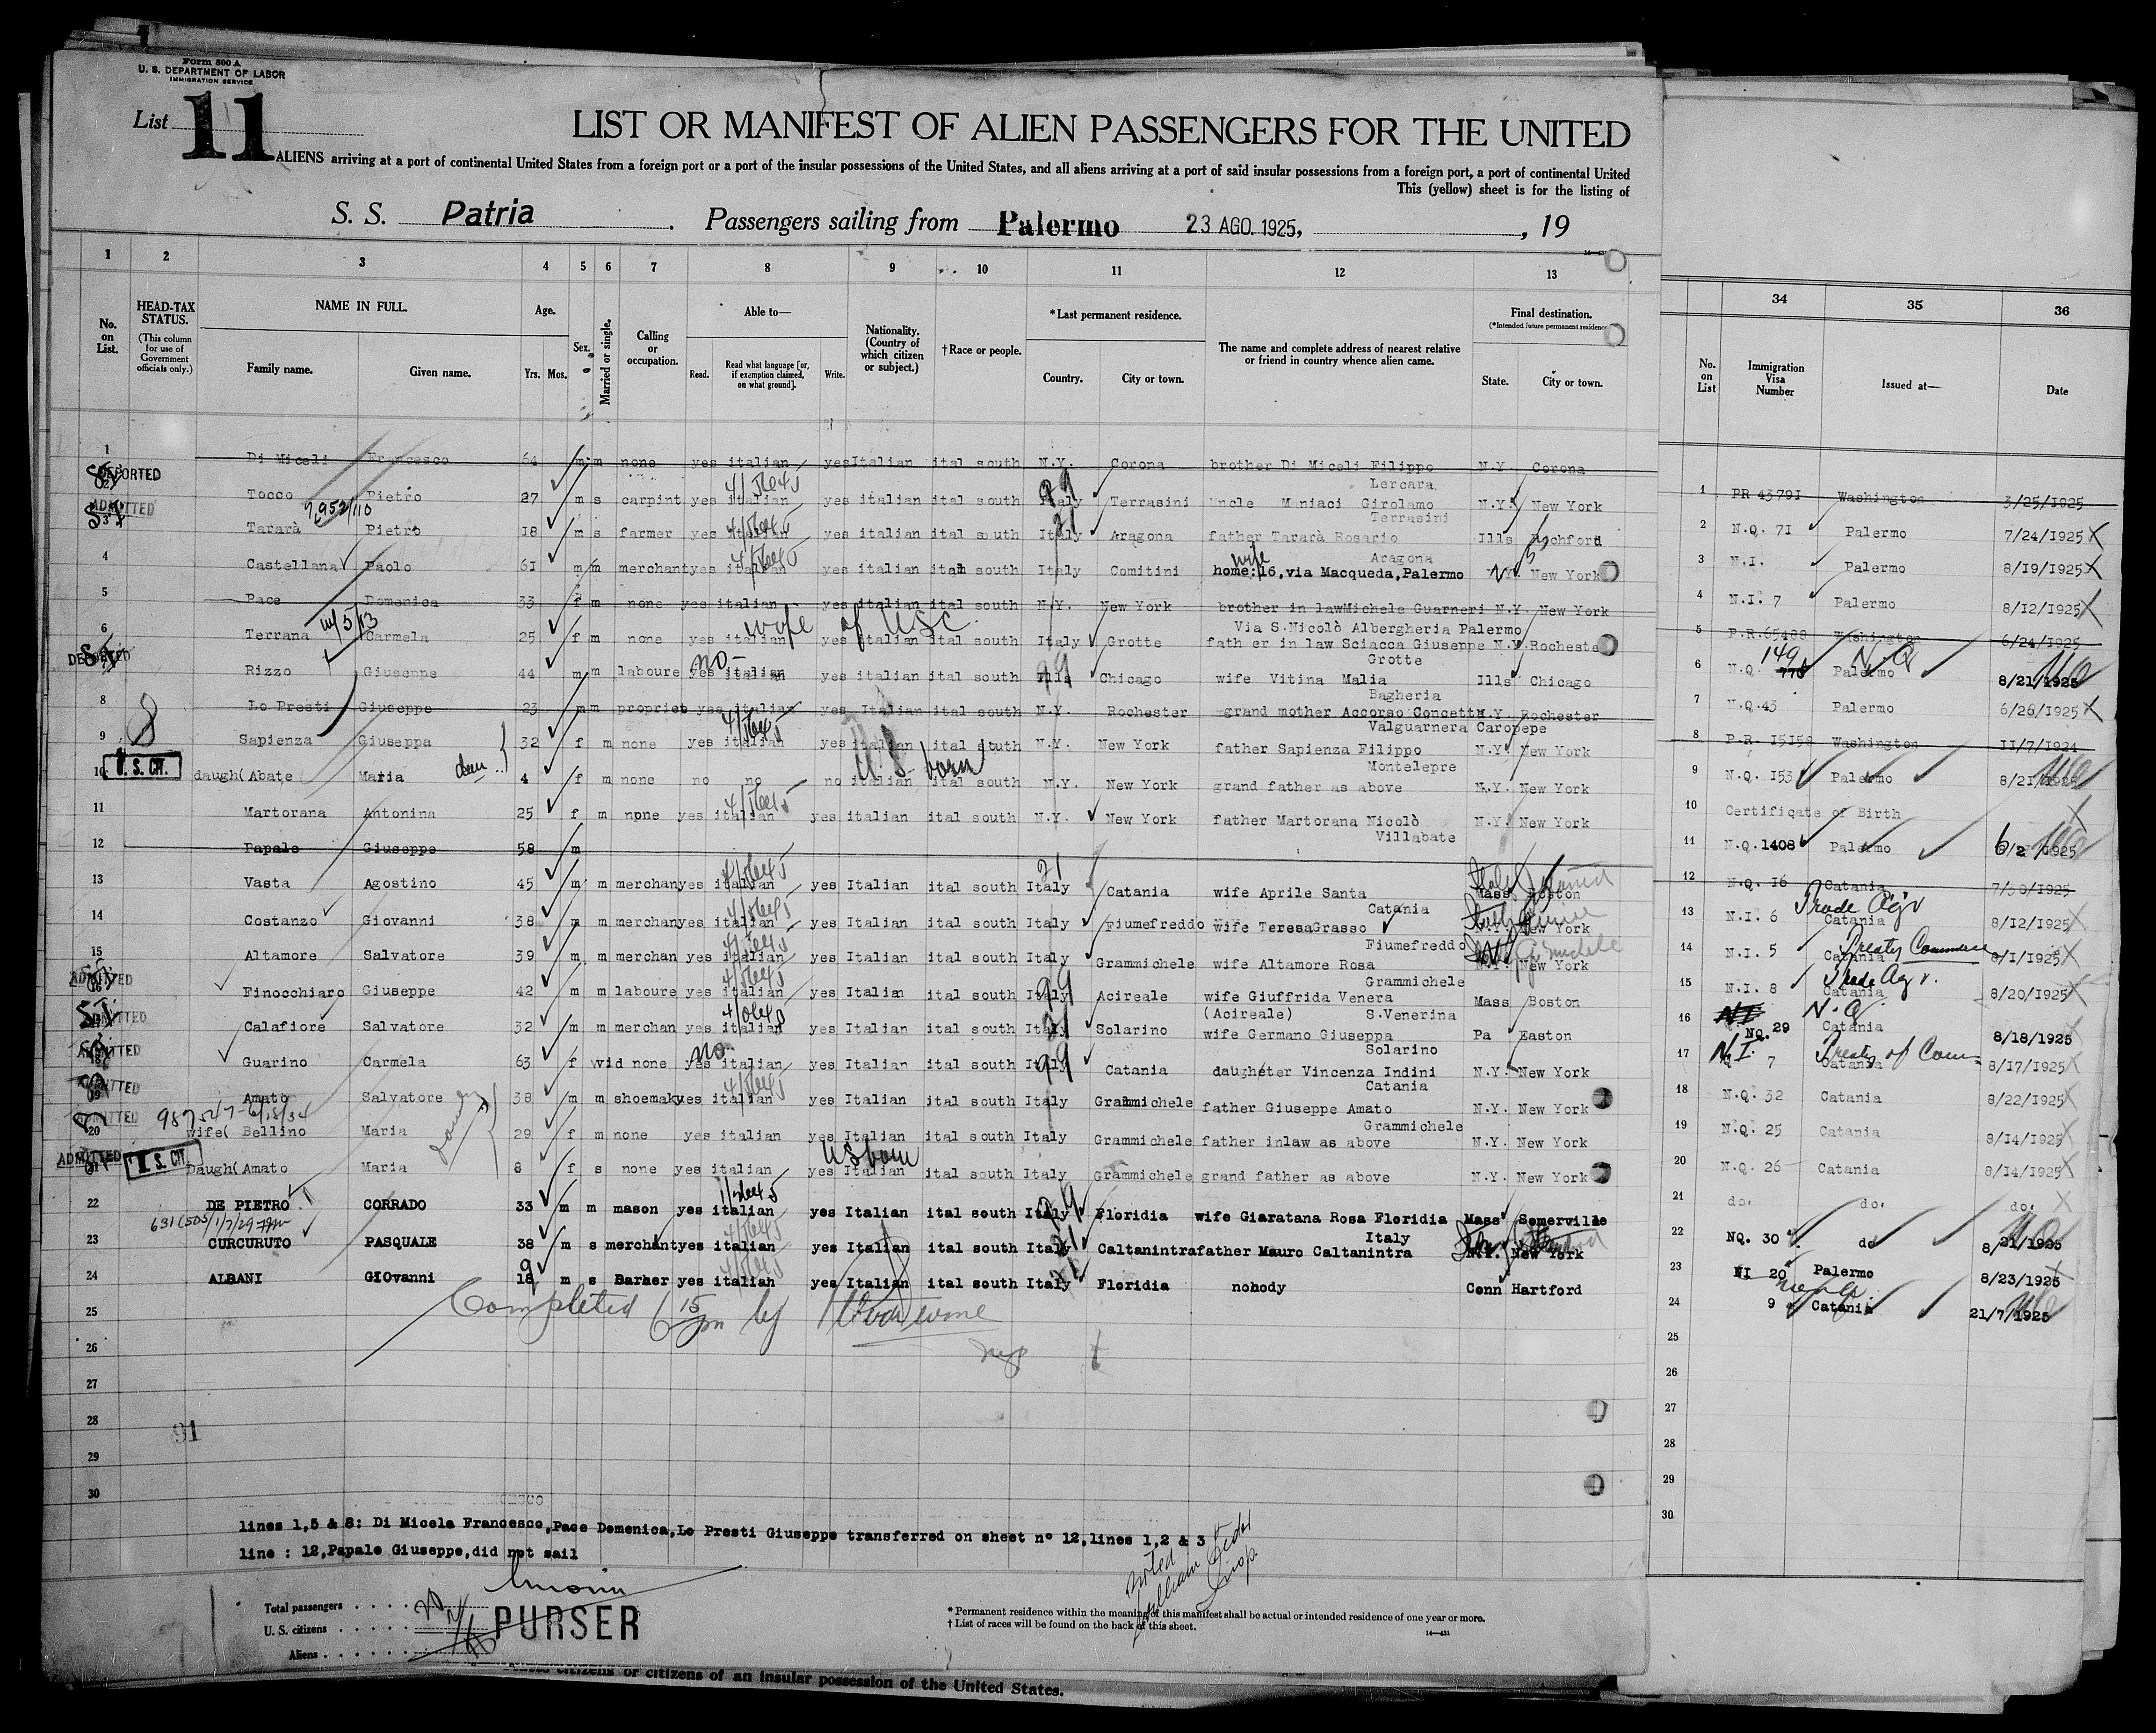 Form 500 A
U. S. DEPARTMENT OF LABOR
IMMIGRATION SERVICE
List 11
LIST OR MANIFEST OF ALIEN PASSENGERS FOR THE UNITED
ALIENS arriving at a port of continental United States from a foreign port or a port of the insular possessions of the United States, and all aliens arriving at a port of said insular possessions from a foreign port, a port of continental United
This (yellow) sheet is for the listing of
S. S. Patria. Passengers sailing from Palermo 23 AGO. 1925, , 19
1 2 3 4 5 6 7 8 9 10 11 12 13
No. on List. HEAD-TAX STATUS. (This column for use of Government officials only.) NAME IN FULL. Family name. Given name. Age. Yrs. Mos. Sex. Married or single. Calling or occupation. Able to— Read. Read what language [or, if exemption claimed, on what ground]. Write. Nationality. (Country of which citizen or subject.) †Race or people. *Last permanent residence. Country. City or town. The name and complete address of nearest relative or friend in country whence alien came. Final destination. (*Intended future permanent residence) State. City or town.
34 35 36
No. on List Immigration Visa Number Issued at— Date
1 Di Miceli Francesco 64 m m none yes italian yes Italian ital south N.Y. Corona brother Di Miceli Filippo N.Y. Corona
DEPORTED Lercara
Tocco Pietro 27 m s carpint yes italian yes italian ital south Italy Terrasini Uncle Maniaci Girolamo N.Y. New York
ADMITTED Terrasini
3 Tararà Pietro 18 m s farmer yes italian yes italian ital south Italy Aragona father Tararà Rosario Ills Rochford
Aragona
4 Castellana Paolo 61 m m merchant yes italian yes italian ital south Italy Comitini wife home:16,via Macqueda,Palermo N.Y. New York
5 Pace Domenica 33 f m none yes italian yes italian ital south N.Y. New York brother in law Michele Guarneri N.Y. New York
wife of U.S.C. Via S.Nicolò Albergheria Palermo
6 Terrana Carmela 25 f m none yes italian yes italian ital south Italy Grotte father in law Sciacca Giuseppe N.Y. Rochester
Grotte
DEPORTED Rizzo Giuseppe 44 m m laboure yes no- italian yes italian ital south Ills Chicago wife Vitina Malia Ills Chicago
Bagheria
8 Lo Presti Giuseppe 23 m m propriet yes italian yes Italian ital south N.Y. Rochester grand mother Accorso Concetta N.Y. Rochester
Valguarnera Caropepe
9 Sapienza Giuseppa 32 f m none yes italian yes italian ital south N.Y. New York father Sapienza Filippo N.Y. New York
U. S. CIT. U.S. born Montelepre
10 daugh( Abate Maria 4 f m none no no no italian ital south N.Y. New York grand father as above N.Y. New York
11 Martorana Antonina 25 f m none yes italian yes italian ital south N.Y. New York father Martorana Nicolò N.Y. New York
Villabate
12 Papale Giuseppe 58 m
13 Vasta Agostino 45 m m merchan yes italian yes Italian ital south Italy Catania wife Aprile Santa Mass Boston
Catania
14 Costanzo Giovanni 38 m m merchan yes italian yes Italian ital south Italy Fiumefreddo Wife Teresa Grasso N.Y. New York
Fiumefreddo
15 Altamore Salvatore 39 m m merchan yes italian yes Italian ital south Italy Grammichele wife Altamore Rosa N.Y. New York
ADMITTED Grammichele
16 Finocchiaro Giuseppe 42 m m laboure yes italian yes Italian ital south Italy Acireale wife Giuffrida Venera Mass Boston
ADMITTED (Acireale) S.Venerina
Calafiore Salvatore 32 m m merchan yes italian yes Italian ital south Italy Solarino wife Germano Giuseppa Pa Easton
ADMITTED Solarino
18 Guarino Carmela 63 f vid none yes no italian yes Italian ital south Italy Catania daugheter Vincenza Indini N.Y. New York
ADMITTED Catania
19 Amato Salvatore 38 m m shoemak yes italian yes Italian ital south Italy Grammichele father Giuseppe Amato N.Y. New York
ADMITTED Grammichele
20 wife( Bellino Maria 29 f m none yes italian yes Italian ital south Italy Grammichele father inlaw as above N.Y. New York
ADMITTED U. S. CIT. US born
Daugh( Amato Maria 8 f s none yes italian yes Italian ital south Italy Grammichele grand father as above N.Y. New York
22 DE PIETRO CORRADO 33 m m mason yes italian yes Italian ital south Italy Floridia wife Giaratana Rosa Floridia Mass Somerville
Italy
23 CURCURUTO PASQUALE 38 m s merchant yes italian yes Italian ital south Italy Caltanintra father Mauro Caltanintra N.Y. New York
24 ALBANI GIOvanni 18 m s Barber yes italian yes Italian ital south Italy Floridia nobody Conn Hartford
Completed by
25
26
27
28
91
29
30
lines 1,5 & 8: Di Micela Francesco,Pace Domenica,Lo Presti Giuseppe transferred on sheet n° 12,lines 1,2 & 3
line : 12,Papale Giuseppe,did not sail
Total passengers
U. S. citizens
Aliens
PURSER
* Permanent residence within the meaning of this manifest shall be actual or intended residence of one year or more.
† List of races will be found on the back of this sheet.
14—431
citizens or citizens of an insular possession of the United States.
1 PR 43791 Washington 3/25/1925
2 N.Q. 71 Palermo 7/24/1925
3 N.I. Palermo 8/19/1925
4 N.I. 7 Palermo 8/12/1925
5 P.R.65488 Washington 6/24/1925
6 N.Q. 149 Palermo N.Q 8/21/1925
7 N.Q.43 Palermo 6/26/1925
8 P.R. 15158 Washington 11/7/1924
9 N.Q. 153 Palermo 8/21/1925
10 Certificate of Birth
11 N.Q.1408 Palermo
12 N.Q. 16 Catania 7/30/1925
13 N.I. 6 Trade Agr Catania 8/12/1925
14 N.I. 5 Treaty Commerce Catania 8/1/1925
15 N.I. 8 Trade Agr. Catania 8/20/1925
16 NQ. 29 N.Q. Catania 8/18/1925
17 N.I. 7 Treaty of Com Catania 8/17/1925
18 N.Q. 32 Catania 8/22/1925
19 N.Q. 25 Catania 8/14/1925
20 N.Q. 26 Catania 8/14/1925
21 do. do. do.
22 NQ. 30 do 8/21/1925
23 NI 20 Palermo 8/23/1925
24 9 Catania 21/7/1925
25
26
27
28
29
30